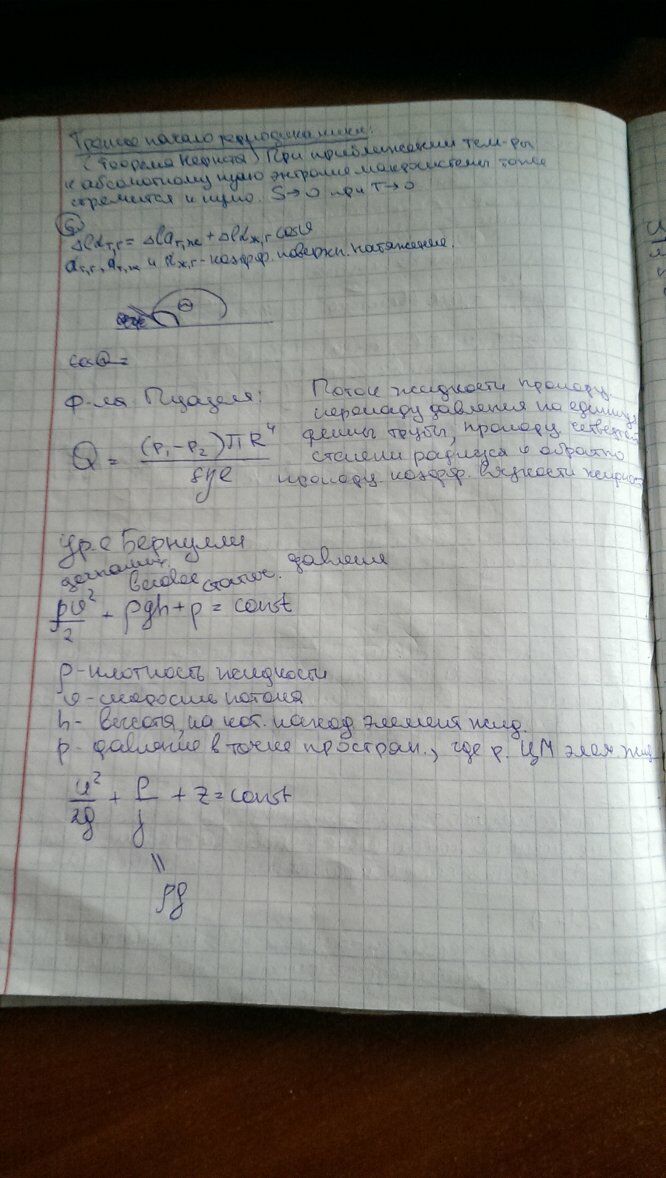 Третье начало термодинамики:
(Теорема Нернста) При приближении тем-ры
к абсолютному нулю энтропия макросистемы тоже
стремится к нулю. S→0 при T→0
Δlα т,г = Δlα т,ж + Δlα ж,г cosθ
α т,г, α т,ж и α ж,г - коэфф. поверхн. натяжение.
Θ
cosΘ=
Ф-ла Пуазеля: Поток жидкости пропорц.
перепаду давления на единицу
длины трубы, пропорц. четвертой
степени радиуса и обратно
пропорц. коэфф. вязкости жидкости
Q = (p₁-p₂)πR⁴ / 8ηl
Ур. е Бернулли
весовое статич. давления
ρv²/2 + ρgh + p = const
ρ-плотность жидкости
v-скорость потока
h- высота, на кот. наход элемент жид.
p- давление в точке простран., где р. ЦМ элем жид
u²/2g + p/γ + z = const
||
ρg